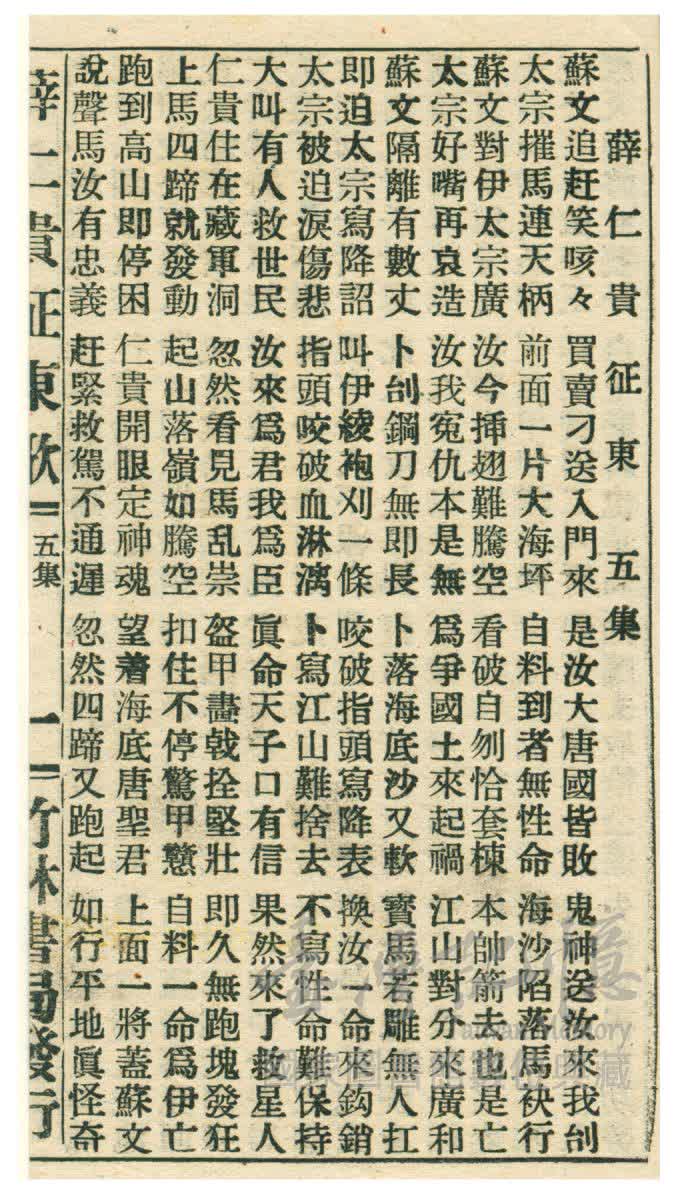 薛仁貴征東 五集
蘇文追赶笑咳々 買賣刁送入門來 是汝大唐國皆敗 鬼神送汝來我刣
太宗摧馬連天柄 前面一片大海坪 自料到者無性命 海沙陷落馬袂行
蘇文對伊太宗廣 汝今揷翅難騰空 看破自刎恰套棟 本帥箭去也是亡
太宗好嘴再哀造 汝我冤仇本是無 爲爭國土來起禍 江山對分來廣和
蘇文隔離有數丈 卜刣鋼刀無即長 卜落海底沙又軟 寳馬若雕無人扛
即迫太宗寫降詔 叫伊綾袍刈一條 咬破指頭寫降表 換汝一命來鈎銷
太宗被迫淚傷悲 指頭咬破血淋漓 卜寫江山難捨去 不寫性命難保持
大叫有人救世民 汝來爲君我爲臣 眞命天子口有信 果然來了救星人
仁貴住在藏軍洞 忽然看見馬乱崇 盔甲盡戟拴堅壯 即久無跑塊發狂
上馬四蹄就發動 起山落嶺如騰空 扣住不停驚甲戇 自料一命爲伊亡
跑到高山即停困 仁貴開眼定神魂 望着海底唐聖君 上面一將蓋蘇文
說聲馬汝有忠義 赶緊救駕不通遲 忽然四蹄又跑起 如行平地眞怪奇
薛仁貴征東歌＝五集 一＝竹林書局發行